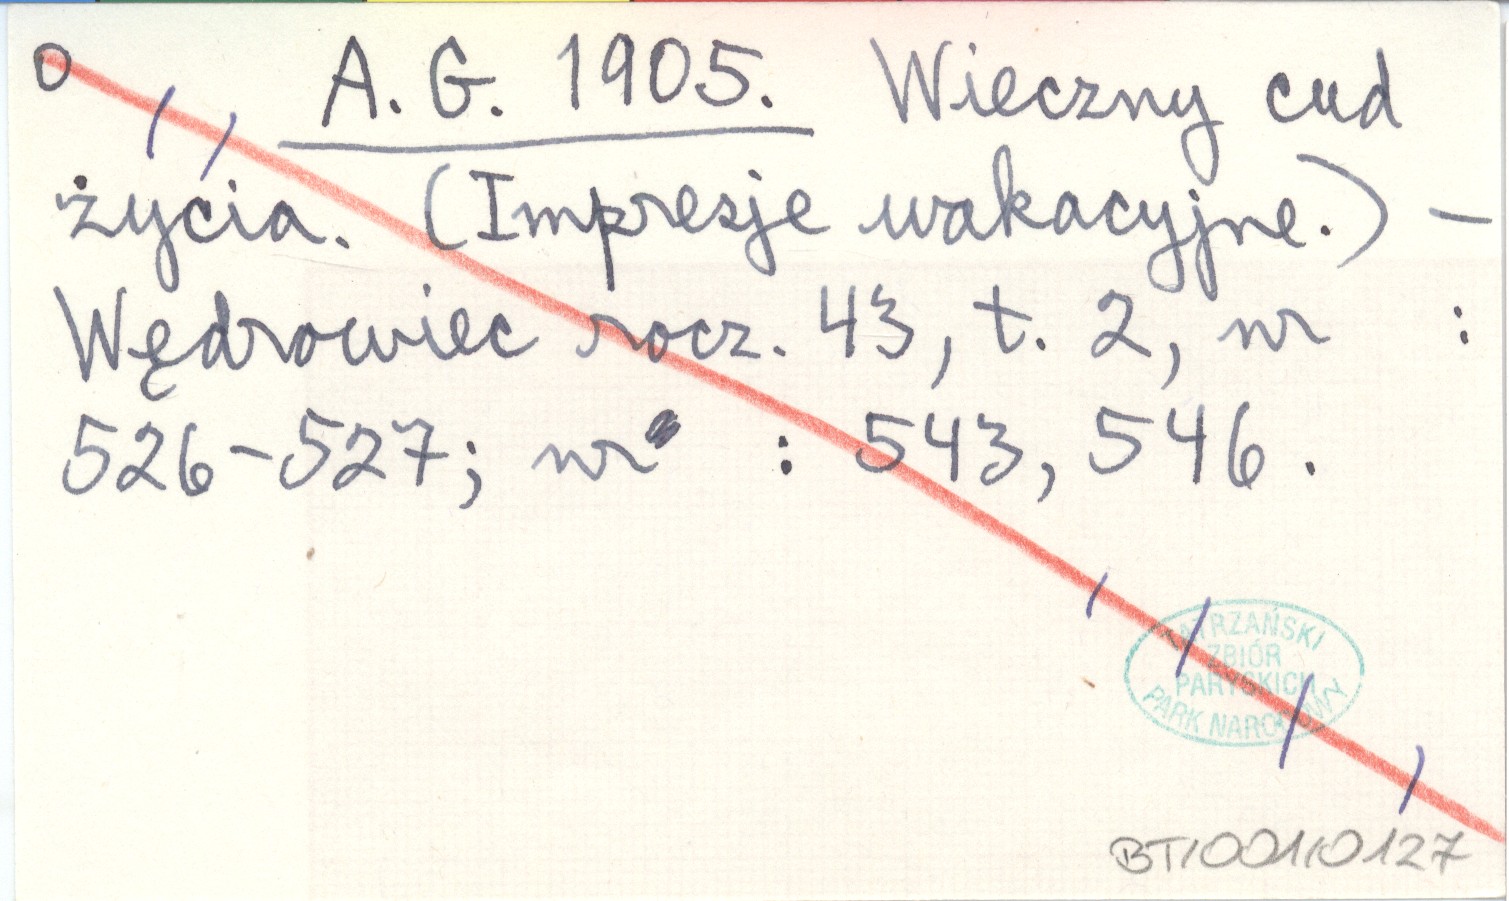 O A. G. 1905. Wieczny cud
życia. (Impresje wakacyjne.) –
Wędrowiec rocz. 43, t. 2, nr :
526-527; nr : 543, 546.
TATRZAŃSKI
ZBIÓR
PARYSKICH
PARK NARODOWY
BT/001/0127